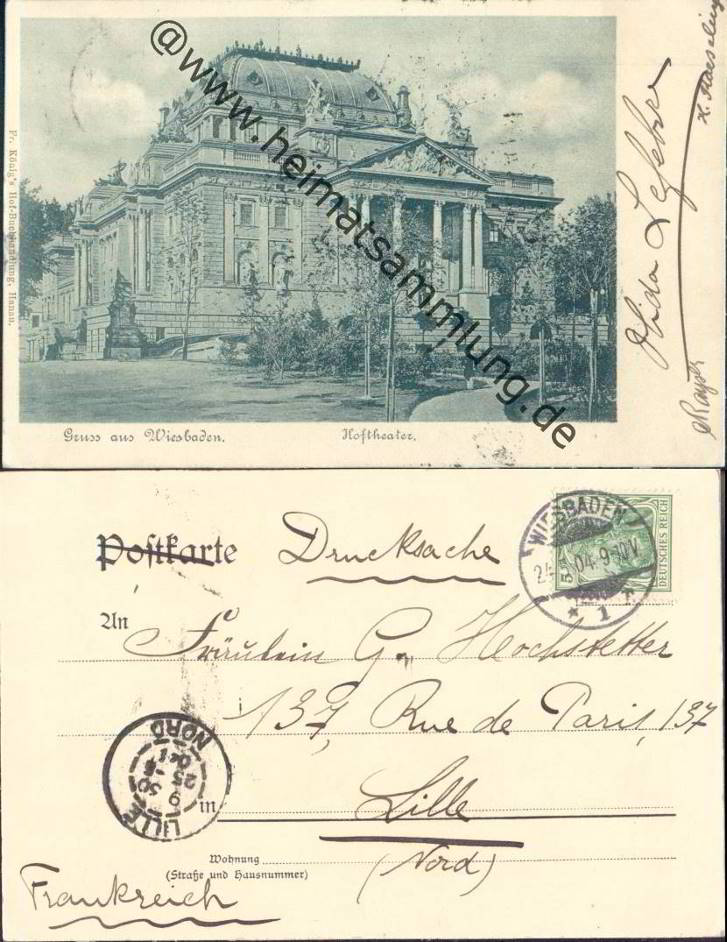 @www.heimatsammlung.de
Fr. König's Hof-Buchhandlung, Hanau.
Gruss aus Wiesbaden.
Hoftheater.
Lefebre
Postkarte
Drucksache
WIESBADEN
04. 9-10V
* 1 r.
5
DEUTSCHES REICH
An
Fräulein G. Hochstetter
137, Rue de Paris, 137
in
Lille
(Nord)
Wohnung
(Straße und Hausnummer)
Frankreich
LILLE
25
04
NORD